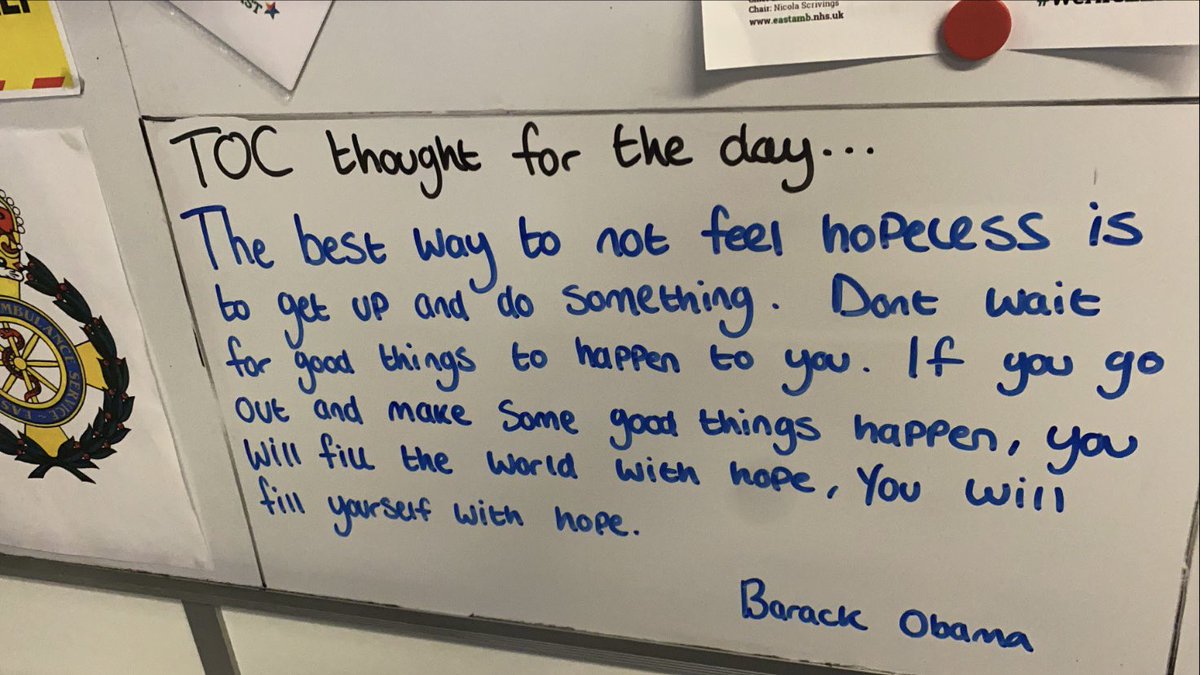 Chair: Nicola Scrivings
www.eastamb.nhs.uk
TOC thought for the day...
The best way to not feel hopeless is
to get up and do something. Dont wait
for good things to happen to you. If you go
out and make some good things happen, you
will fill the world with hope, You will
fill yourself with hope.
Barack Obama
AMBULANCE SERVICE